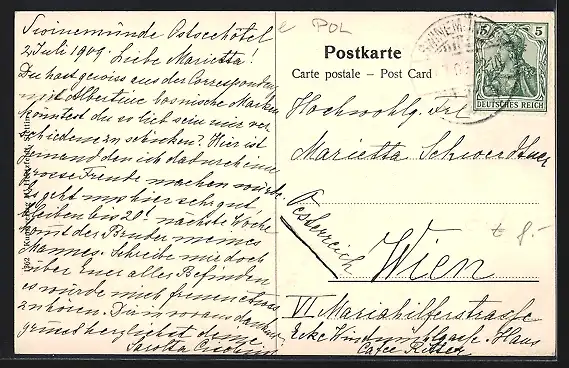 Swinemünde Ostseehôtel
2. Juli 1909. Liebe Marietta!
Du hast gewiss aus der Correspondenz
mit Albertine bosnische Marken
könntest du so lieb sein mir ver
schiedene zu schicken? Hier ist
jemand den ich dadurch eine
grosse Freude machen würde.
Es geht uns hier sehr gut
bleiben bis 20. nächste Woche
kommt der Bruder meines
Mannes. Schreibe mir doch
über Euer alles Befinden
es würde mich freuen etwas
zu hören. Dir im voraus dankend
grüsst herzliebst deine
Sarolta
POL
Postkarte
Carte postale – Post Card
5
DEUTSCHES REICH
Hochwohlg. Frl
Marietta Schwerdtner
Oesterreich
Wien
€ 8.-
VI Mariahilferstrasse
Ecke Windmühlgasse. Haus
Café Ritter